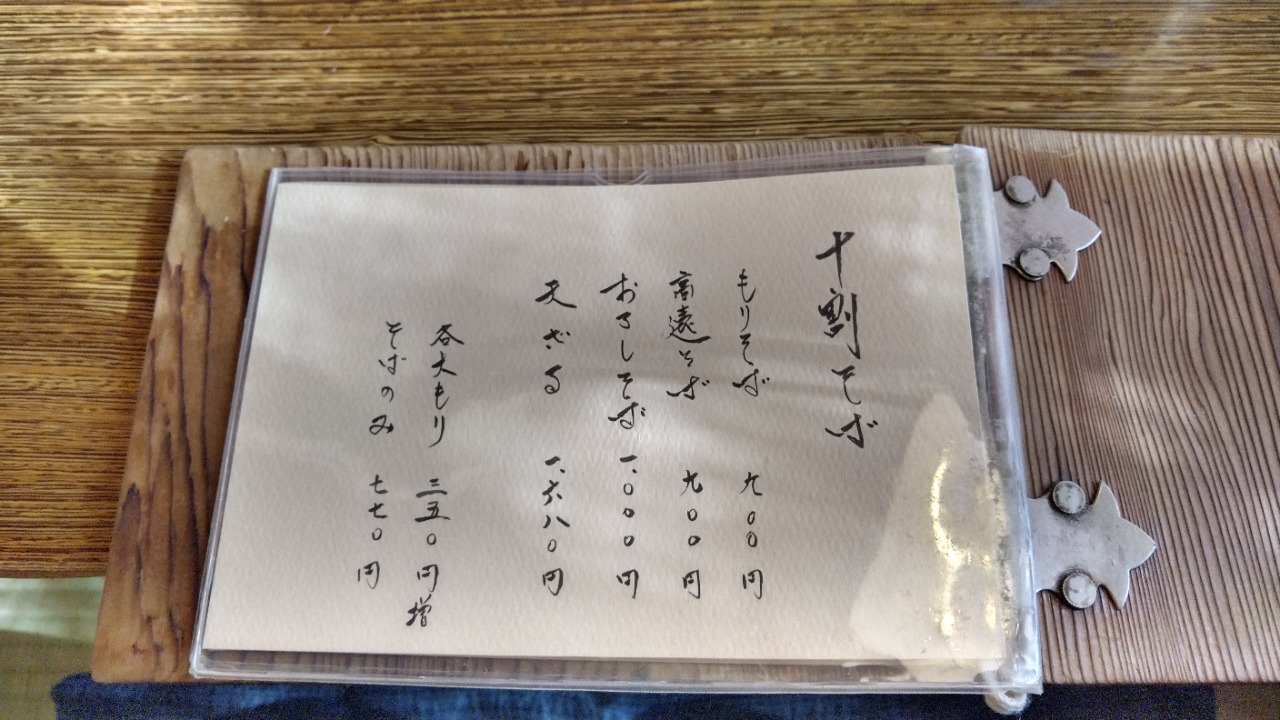 十割そば
もりそば 九〇〇円
高遠そば 九〇〇円
おろしそば 一、〇〇〇円
天ざる 一、六八〇円
各大もり 三五〇円増
そばのみ 七七〇円